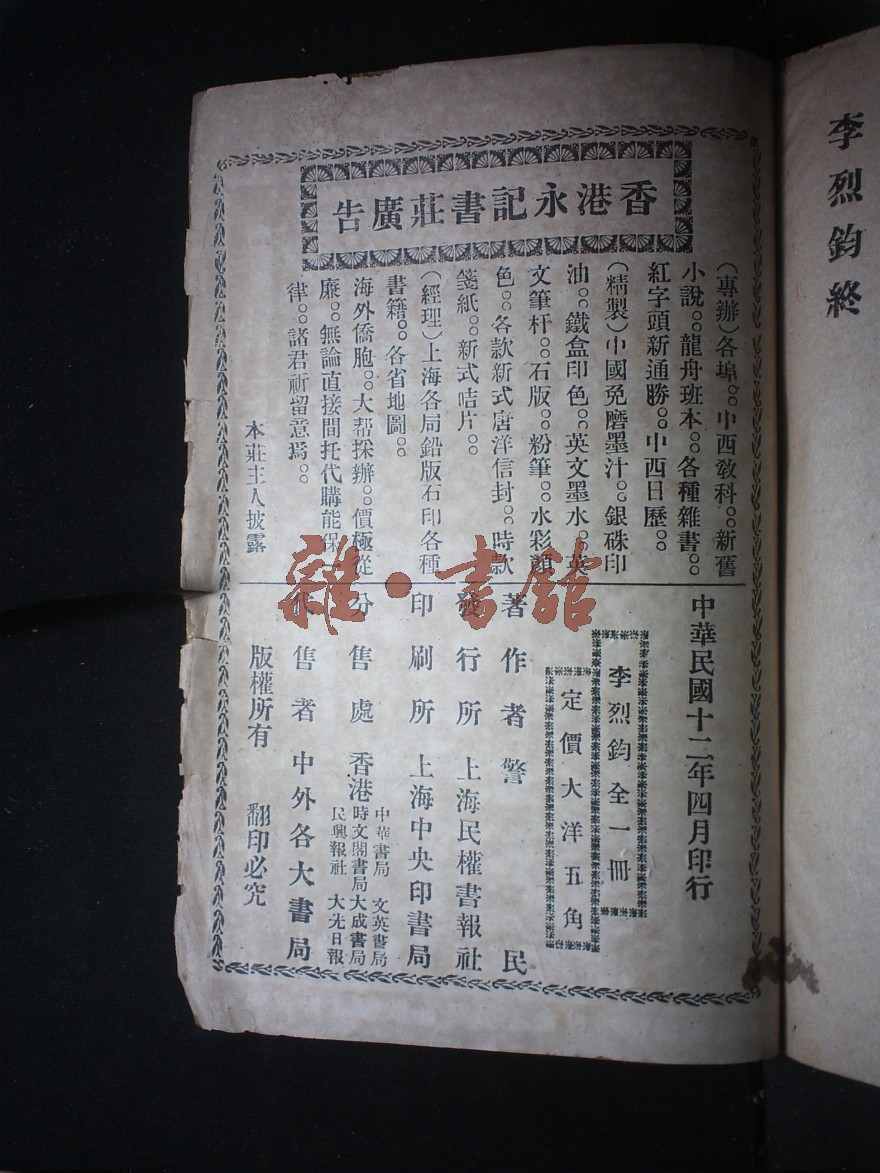 李烈鈞終
香港永記書莊廣告
（專辦）各埠。。中西教科。。新舊
小說。。龍舟班本。。各種雜書。。
紅字頭新通勝。。中西日歷。。
（精製）中國免磨墨汁。。銀硃印
油。。鐵盒印色。。英文墨水。。英
文筆杆。。石版。。粉筆。。水彩顏
色。。各款新式唐洋信封。。時款
箋紙。。新式咭片。。
（經理）上海各局鉛版石印各種
書籍。。各省地圖。。
海外僑胞。。大帮採辦。。價極從
廉。。無論直接間托代購能保一
律。。諸君祈留意爲。。
本莊主人披露
中華民國十二年四月印行
李烈鈞全一冊
定價大洋五角
著作者 警民
發行所 上海民權書報社
印刷所 上海中央印書局
分售處 香港 中華書局 文英書局
時文閣書局 大成書局
民興報社 大光日報
代售者 中外各大書局
版權所有 翻印必究
雜·書館